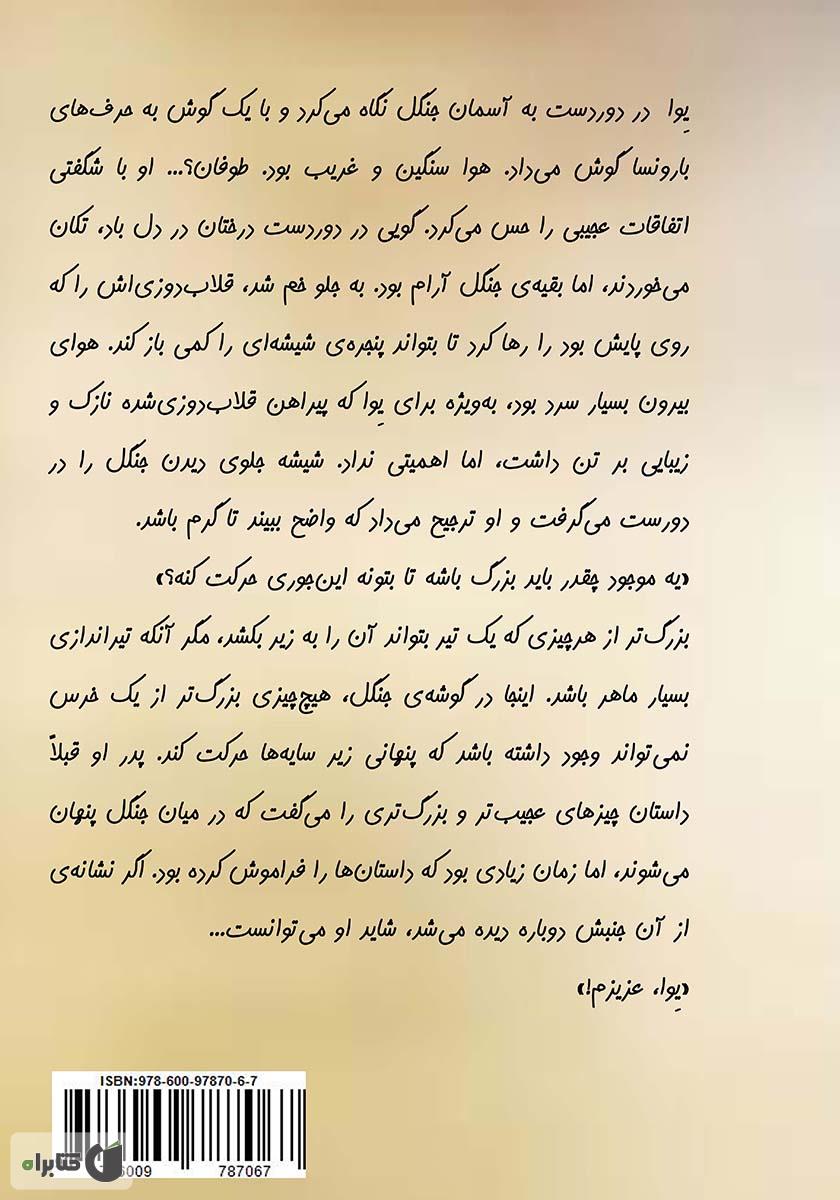 یِوا در دوردست به آسمان جنگل نگاه می‌کرد و با یک گوش به حرف‌های
بارونسا گوش می‌داد. هوا سنگین و غریب بود. طوفان؟... او با شگفتی
اتفاقات عجیبی را حس می‌کرد. گویی در دوردست درختان در دل باد، تکان
می‌خوردند، اما بقیه‌ی جنگل آرام بود. به جلو خم شد، قلاب‌دوزی‌اش را که
روی پایش بود را رها کرد تا بتواند پنجره‌ی شیشه‌ای را کمی باز کند. هوای
بیرون بسیار سرد بود، به‌ویژه برای یِوا که پیراهن قلاب‌دوزی‌شده نازک و
زیبایی بر تن داشت، اما اهمیتی نداد. شیشه جلوی دیدن جنگل را در
دورست می‌گرفت و او ترجیح می‌داد که واضح ببیند تا گرم باشد.
«یه موجود چقدر باید بزرگ باشه تا بتونه این‌جوری حرکت کنه؟»
بزرگ‌تر از هرچیزی که یک تیر بتواند آن را به زیر بکشد، مگر آنکه تیراندازی
بسیار ماهر باشد. اینجا در گوشه‌ی جنگل، هیچ‌چیزی بزرگ‌تر از یک خرس
نمی‌تواند وجود داشته باشد که پنهانی زیر سایه‌ها حرکت کند. پدر او قبلاً
داستان چیزهای عجیب‌تر و بزرگ‌تری را می‌گفت که در میان جنگل پنهان
می‌شوند، اما زمان زیادی بود که داستان‌ها را فراموش کرده بود. اگر نشانه‌ی
از آن جنبش دوباره دیده می‌شد، شاید او می‌توانست...
«یِوا، عزیزم!»
ISBN:978-600-97870-6-7
6009 787067
کتابراه